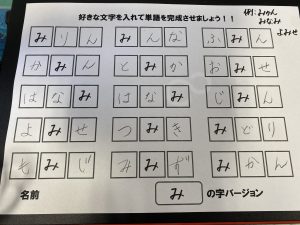 好きな文字を入れて単語を完成させましょう！！
例：みかん
みなみ
よみせ
みりん みんな ふみん
かみん とみか おみせ
はなみ はなみ じみん
よみせ つみき みどり
もみじ みみず みかん
名前 み の字バージョン